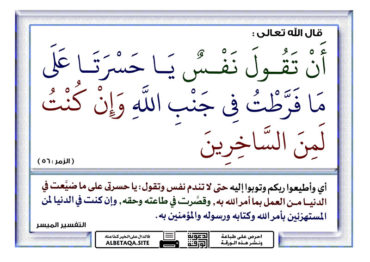 قال الله تعالى :
أَنْ تَقُولَ نَفْسٌ يَا حَسْرَتَا عَلَىٰ
مَا فَرَّطْتُ فِي جَنْبِ اللَّهِ وَإِنْ كُنْتُ
لَمِنَ السَّاخِرِينَ
( الزمر : ٥٦ )
أي وأطيعوا ربكم وتوبوا إليه حتى لا تندم نفس وتقول: يا حسرتى على ما ضيَّعت في
الدنيا من العمل بما أمر الله به، وقصَّرت في طاعته وحقه، وإن كنت في الدنيا لمن
المستهزئين بأمر الله وكتابه ورسوله والمؤمنين به.
التفسير الميسر
احرص على طباعة
ونشر هذه الورقة
فالدال على الخير كفاعله
ALBETAQA.SITE